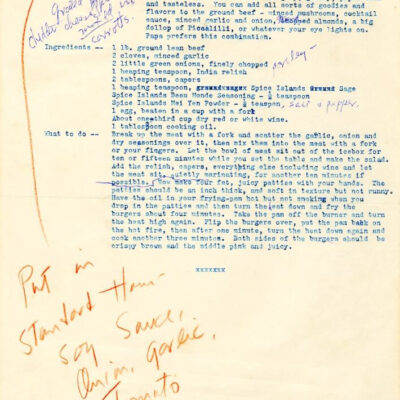 and tasteless. You can add all sorts of goodies and
flavors to the ground beef - minced mushrooms, cocktail
sauce, minced garlic and onion, chopped almonds, a big
dollop of Piccalilli, or whatever your eye lights on.
Papa prefers this combination.
cheddar
carrots.
parsley -
Ingredients -- 1 lb. ground lean beef
2 cloves, minced garlic
2 little green onions, finely chopped
1 heaping teaspoon, India relish
2 tablespoons, capers
1 heaping teaspoon, Spice Islands Sage
Spice Islands Beau Monde Seasoning - ½ teaspoon
Spice Islands Mei Yen Powder - ½ teaspoon, salt & pepper.
1 egg, beaten in a cup with a fork
About one third cup dry red or white wine.
1 tablespoon cooking oil.
What to do -- Break up the meat with a fork and scatter the garlic, onion and
dry seasonings over it, then mix them into the meat with a fork
or your fingers. Let the bowl of meat sit out of the icebox for
ten or fifteen minutes while you set the table and make the salad.
Add the relish, capers, everything else including wine and let
the meat sit, quietly marinating, for another ten minutes if
possible. Now make four fat, juicy patties with your hands. The
patties should be an inch thick, and soft in texture but not runny.
Have the oil in your frying-pan hot but not smoking when you
drop in the patties and then turn the heat down and fry the
burgers about four minutes. Take the pan off the burner and turn
the heat high again. Flip the burgers over, put the pan back on
the hot fire, then after one minute, turn the heat down again and
cook another three minutes. Both sides of the burgers should be
crispy brown and the middle pink and juicy.
xxxxxxx
Put in
Standard Ham-
Soy Sauce,
Onion, Garlic,
Tomato